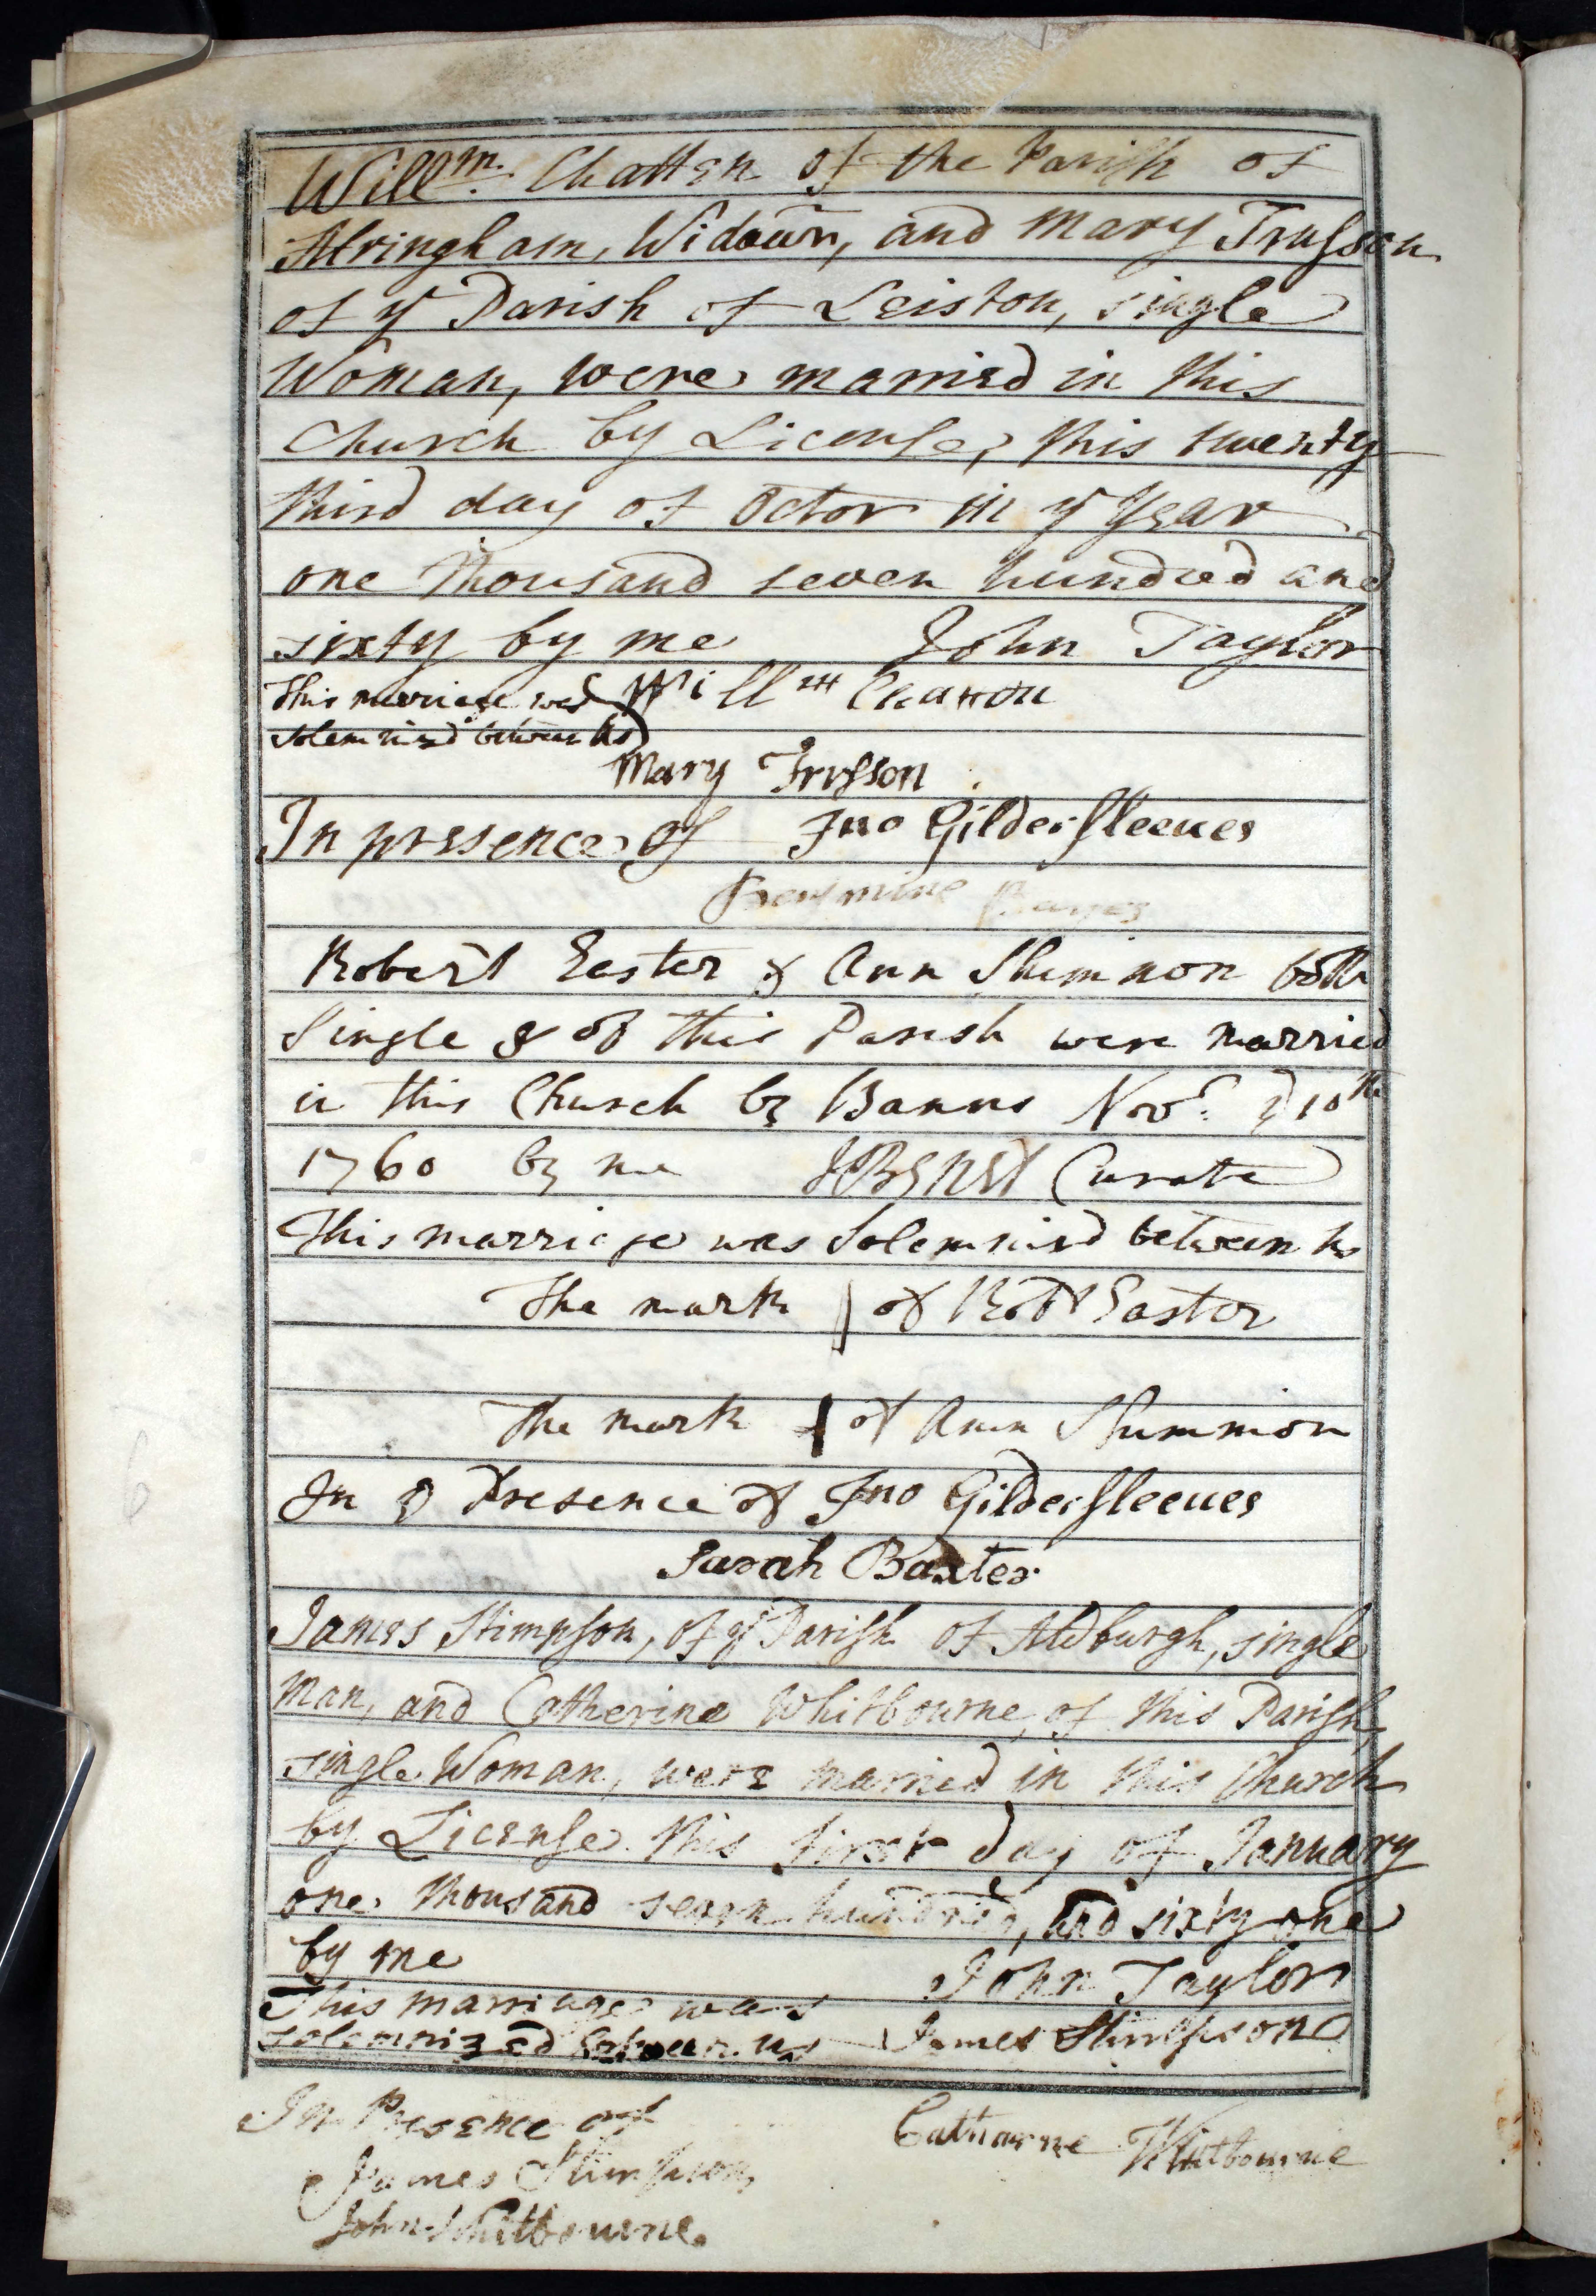 Willm. Chatten of the Parish of
Alringham, Widowr, and Mary Trusson
of ye Parish of Leiston, single
Woman, were married in this
Church by License, this twenty
third day of Octor in ye Year
one thousand seven hundred and
sixty by me John Taylor
This marriage was Willm Chatton
solemnized between us
Mary Trusson
In presence of Jno Gildersleeves
Robert Easter & Ann Shimmon both
Single & of this Parish were married
in this Church by Banns Novr. ye 10th
1760 by me Curate
This marriage was Solemnized between us
The mark of Robt Easter
The mark of Ann Shimmon
In ye Presence of Jno Gildersleeves
Sarah Baxter
James Stimpson, of ye Parish of Aldburgh, single
Man, and Catherine Whitbourne, of this Parish,
single Woman, were married in this Church
by License this first day of January
one thousand seven hundred, and sixty one
by me John Taylor
This marriage was
solemnized between us James Stimpson
In Presence of Catharne Whitbourne
James Stimpson
John Whitbourne
6